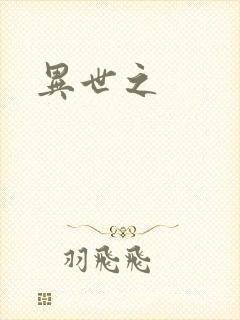 異世之
羽飛飛